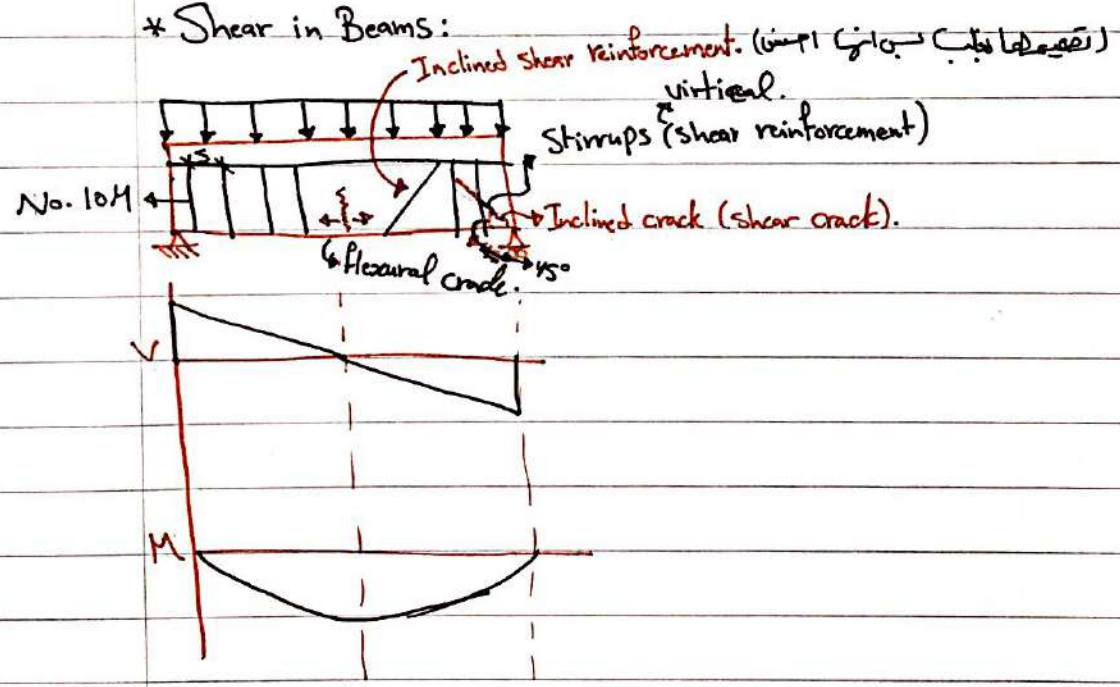 * Shear in Beams:
Inclined Shear reinforcement. (تصميمها صعب بس انها احسن)
virtical.
Stirrups (shear reinforcement)
S
No. 10M
Inclined crack (shear crack).
flexural crack.
45°
V
M